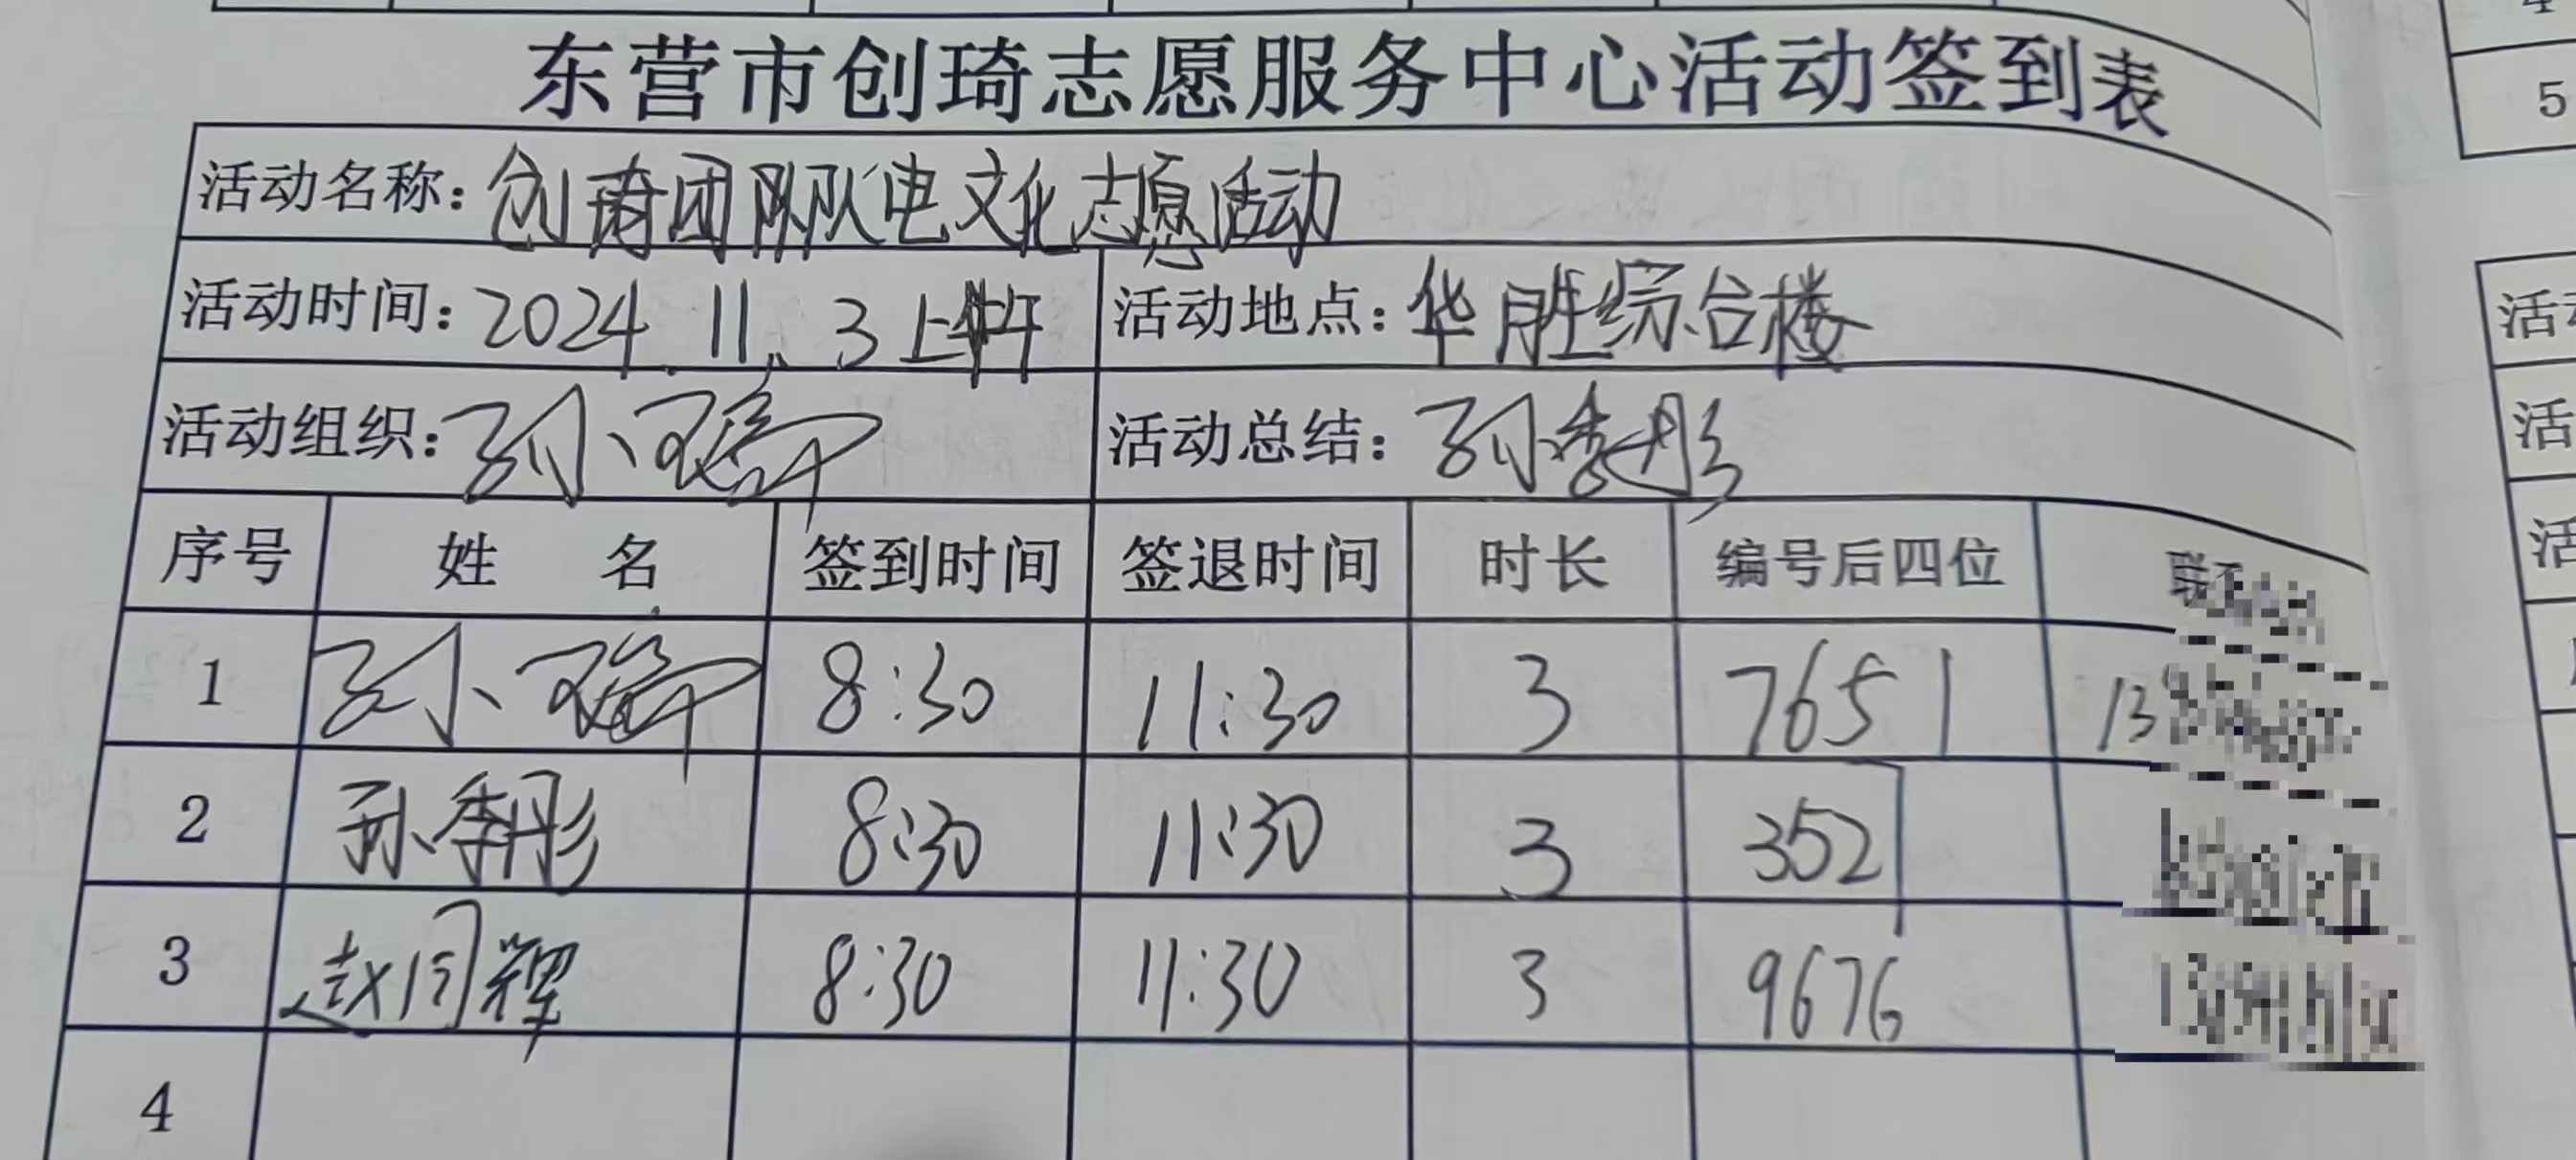 东营市创琦志愿服务中心活动签到表
活动名称：创琦团队队电文化志愿活动
活动时间：2024.11.3上午 活动地点：华胜综合楼
活动组织：孙 活动总结：孙季彤
序号 姓 名 签到时间 签退时间 时长 编号后四位 联
1 孙 8:30 11:30 3 7651 13
2 孙季彤 8:30 11:30 3 3521
3 赵同辉 8:30 11:30 3 9676
4
5
活动
活
活